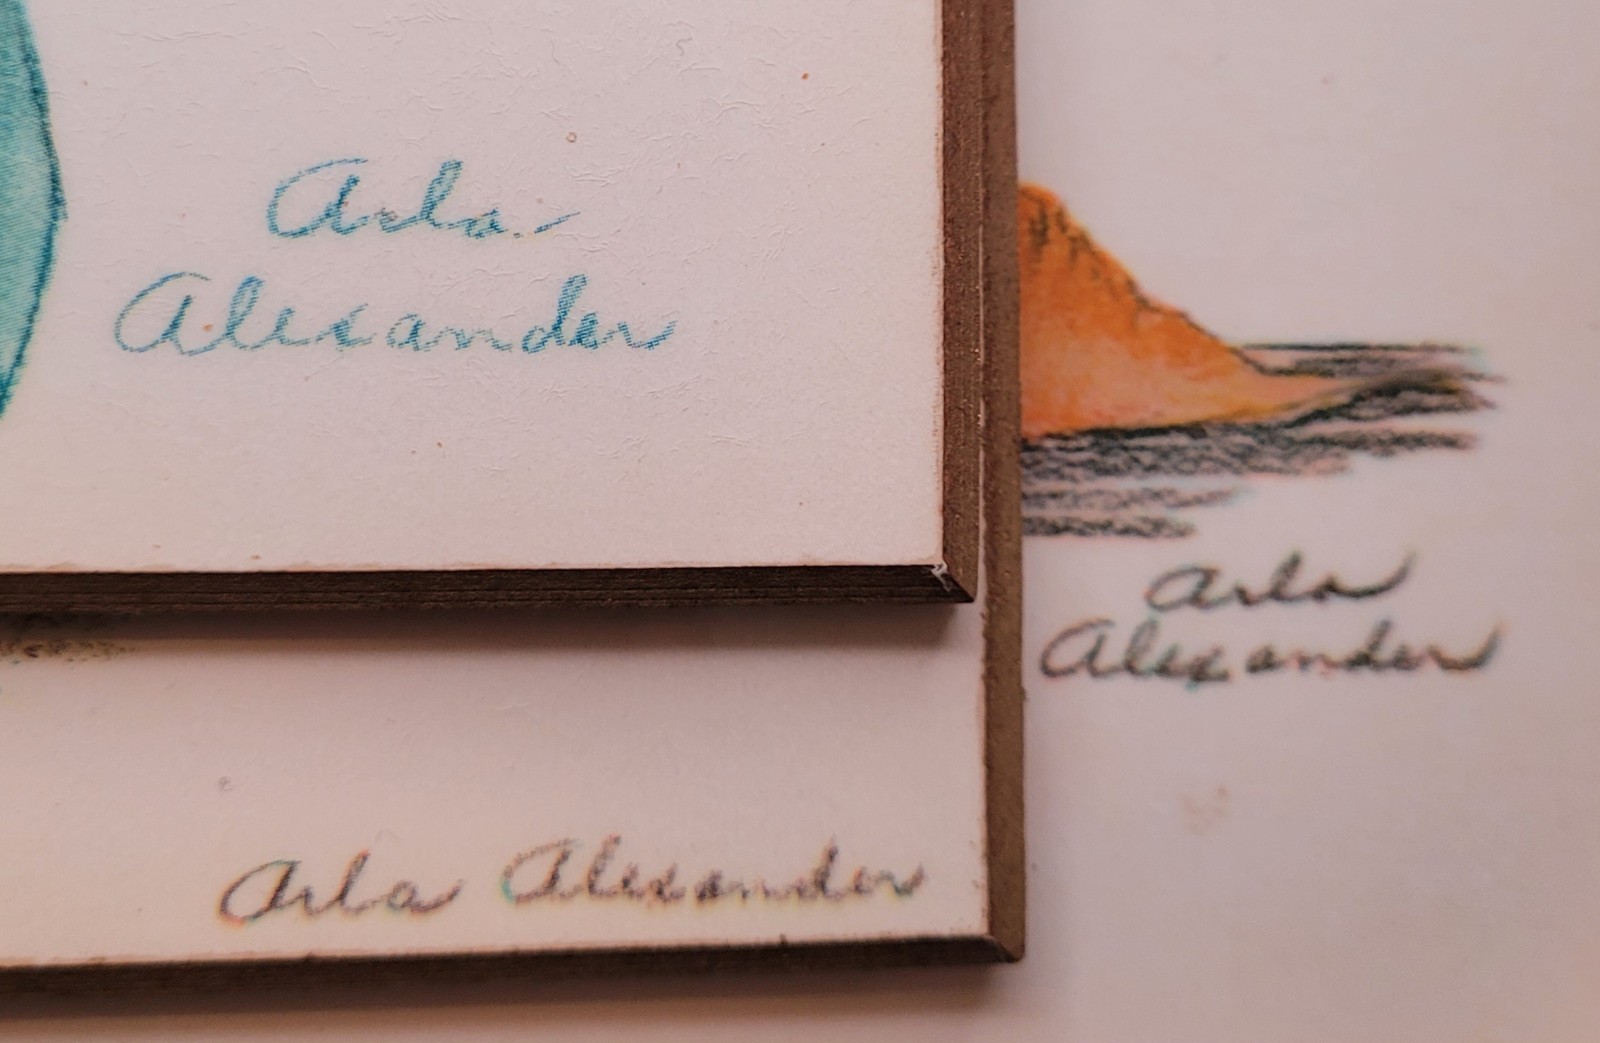 Arla
Alexander
Arla
Alexander
Arla Alexander